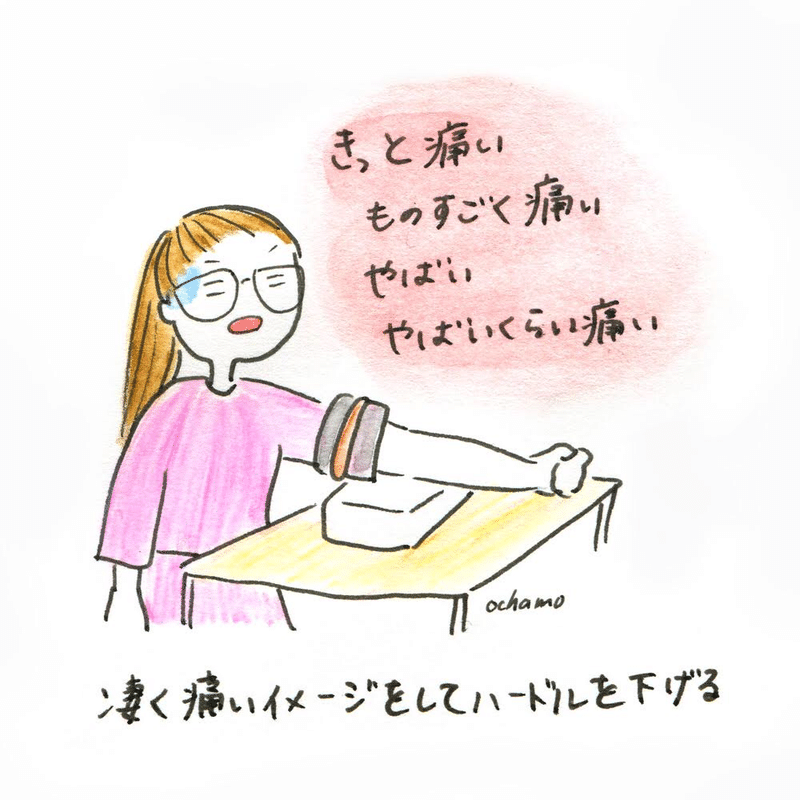 きっと痛い
ものすごく痛い
やばい
やばいくらい痛い
ochamo
凄く痛いイメージをしてハードルを下げる